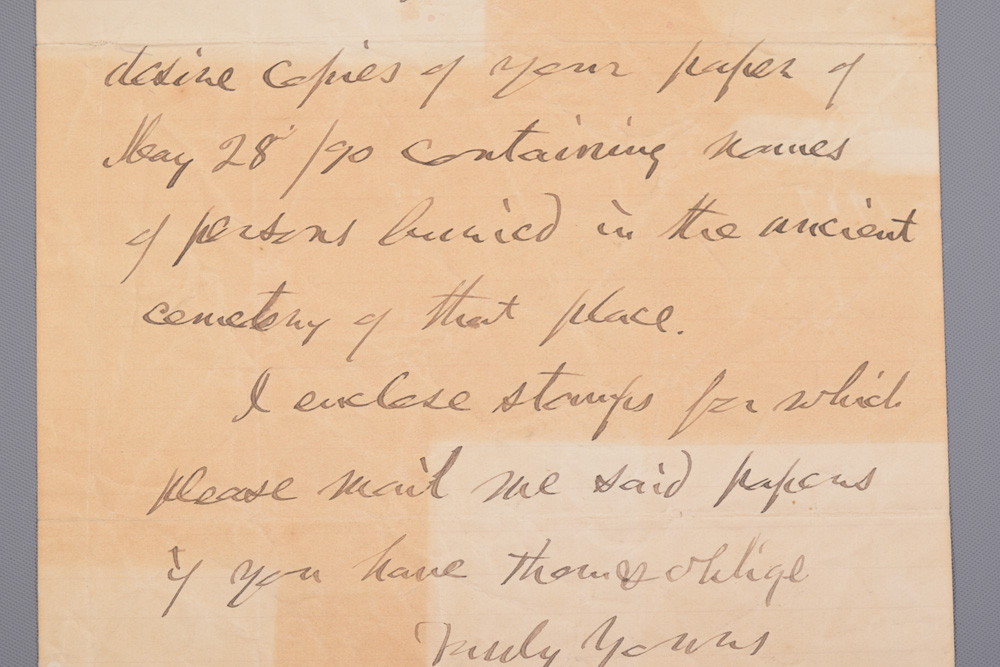 desire copies of your paper of
May 28 /90 containing names
of persons buried in the ancient
cemetery of that place.
I enclose stamps for which
please mail me said papers
if you have them & oblige
Truly Yours